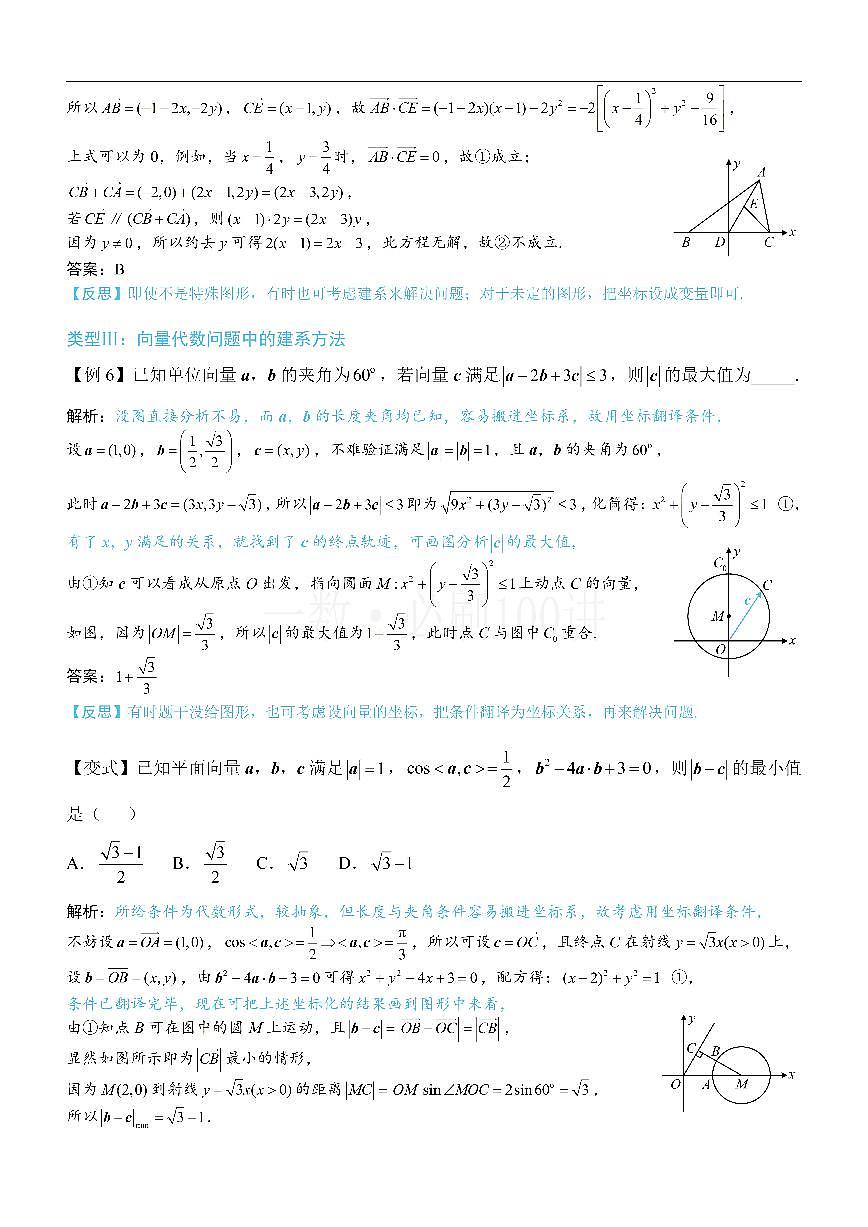 所以 $\overrightarrow{AB}=(-1-2x,-2y)$，$\overrightarrow{CE}=(x-1,y)$，故 $\overrightarrow{AB}\cdot\overrightarrow{CE}=(-1-2x)(x-1)-2y^2=-2\left[\left(x-\frac{1}{4}\right)^2+y^2-\frac{9}{16}\right]$，
上式可以为 0，例如，当 $x=\frac{1}{4}$，$y=\frac{3}{4}$ 时，$\overrightarrow{AB}\cdot\overrightarrow{CE}=0$，故①成立；
$\overrightarrow{CB}+\overrightarrow{CA}=(-2,0)+(2x-1,2y)=(2x-3,2y)$，
若 $\overrightarrow{CE}∥(\overrightarrow{CB}+\overrightarrow{CA})$，则 $(x-1)\cdot 2y=(2x-3)y$，
因为 $y\neq 0$，所以约去 y 可得 $2(x-1)=2x-3$，此方程无解，故②不成立.
y
A
E
B D C x
答案：B
【反思】即使不是特殊图形，有时也可考虑建系来解决问题；对于未定的图形，把坐标设成变量即可.
类型Ⅲ：向量代数问题中的建系方法
【例 6】已知单位向量 a，b 的夹角为 $60°$，若向量 c 满足 $|a-2b+3c|\leq 3$，则 $|c|$ 的最大值为______.
解析：没图直接分析不易，而 a，b 的长度夹角均已知，容易搬进坐标系，故用坐标翻译条件，
设 $a=(1,0)$，$b=\left(\frac{1}{2},\frac{\sqrt{3}}{2}\right)$，$c=(x,y)$，不难验证满足 $|a|=|b|=1$，且 a，b 的夹角为 $60°$，
此时 $a-2b+3c=(3x,3y-\sqrt{3})$，所以 $|a-2b+3c|\leq 3$ 即为 $\sqrt{9x^2+(3y-\sqrt{3})^2}\leq 3$，化简得：$x^2+\left(y-\frac{\sqrt{3}}{3}\right)^2\leq 1$ ①，
有了 x，y 满足的关系，就找到了 c 的终点轨迹，可画图分析 $|c|$ 的最大值，
由①知 c 可以看成从原点 O 出发，指向圆面 $M:x^2+\left(y-\frac{\sqrt{3}}{3}\right)^2\leq 1$ 上动点 C 的向量，
如图，因为 $|OM|=\frac{\sqrt{3}}{3}$，所以 $|c|$ 的最大值为 $1+\frac{\sqrt{3}}{3}$，此时点 C 与图中 $C_0$ 重合.
y
C₀
C
c
M
O x
一数·必刷100讲
答案：$1+\frac{\sqrt{3}}{3}$
【反思】有时题干没给图形，也可考虑设向量的坐标，把条件翻译为坐标关系，再来解决问题.
【变式】已知平面向量 a，b，c 满足 $|a|=1$，$\cos<a,c>=\frac{1}{2}$，$b^2-4a\cdot b+3=0$，则 $|b-c|$ 的最小值
是（ ）
A．$\frac{\sqrt{3}-1}{2}$ B．$\frac{\sqrt{3}}{2}$ C．$\sqrt{3}$ D．$\sqrt{3}-1$
解析：所给条件为代数形式，较抽象，但长度与夹角条件容易搬进坐标系，故考虑用坐标翻译条件，
不妨设 $a=\overrightarrow{OA}=(1,0)$，$\cos<a,c>=\frac{1}{2}\Rightarrow<a,c>=\frac{\pi}{3}$，所以可设 $c=\overrightarrow{OC}$，且终点 C 在射线 $y=\sqrt{3}x(x>0)$ 上，
设 $b=\overrightarrow{OB}=(x,y)$，由 $b^2-4a\cdot b+3=0$ 可得 $x^2+y^2-4x+3=0$，配方得：$(x-2)^2+y^2=1$ ①，
条件已翻译完毕，现在可把上述坐标化的结果画到图形中来看，
由①知点 B 可在图中的圆 M 上运动，且 $|b-c|=|\overrightarrow{OB}-\overrightarrow{OC}|=|\overrightarrow{CB}|$，
显然如图所示即为 $|\overrightarrow{CB}|$ 最小的情形，
因为 $M(2,0)$ 到射线 $y=\sqrt{3}x(x>0)$ 的距离 $|MC|=|OM|\sin\angle MOC=2\sin 60°=\sqrt{3}$，
所以 $|b-c|_{\min}=\sqrt{3}-1$.
y
C B
O A M x